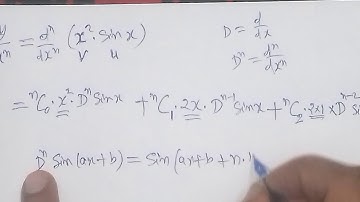 = dⁿ/dxⁿ (x² · Sin x) D = d/dx
v u Dⁿ = dⁿ/dxⁿ
= ⁿC₀ · x² · Dⁿ Sin x + ⁿC₁ · 2x · Dⁿ⁻¹ Sin x + ⁿC₂ · 2×1 × Dⁿ⁻² Sin
Dⁿ Sin (ax+b) = Sin (ax+b + n ·